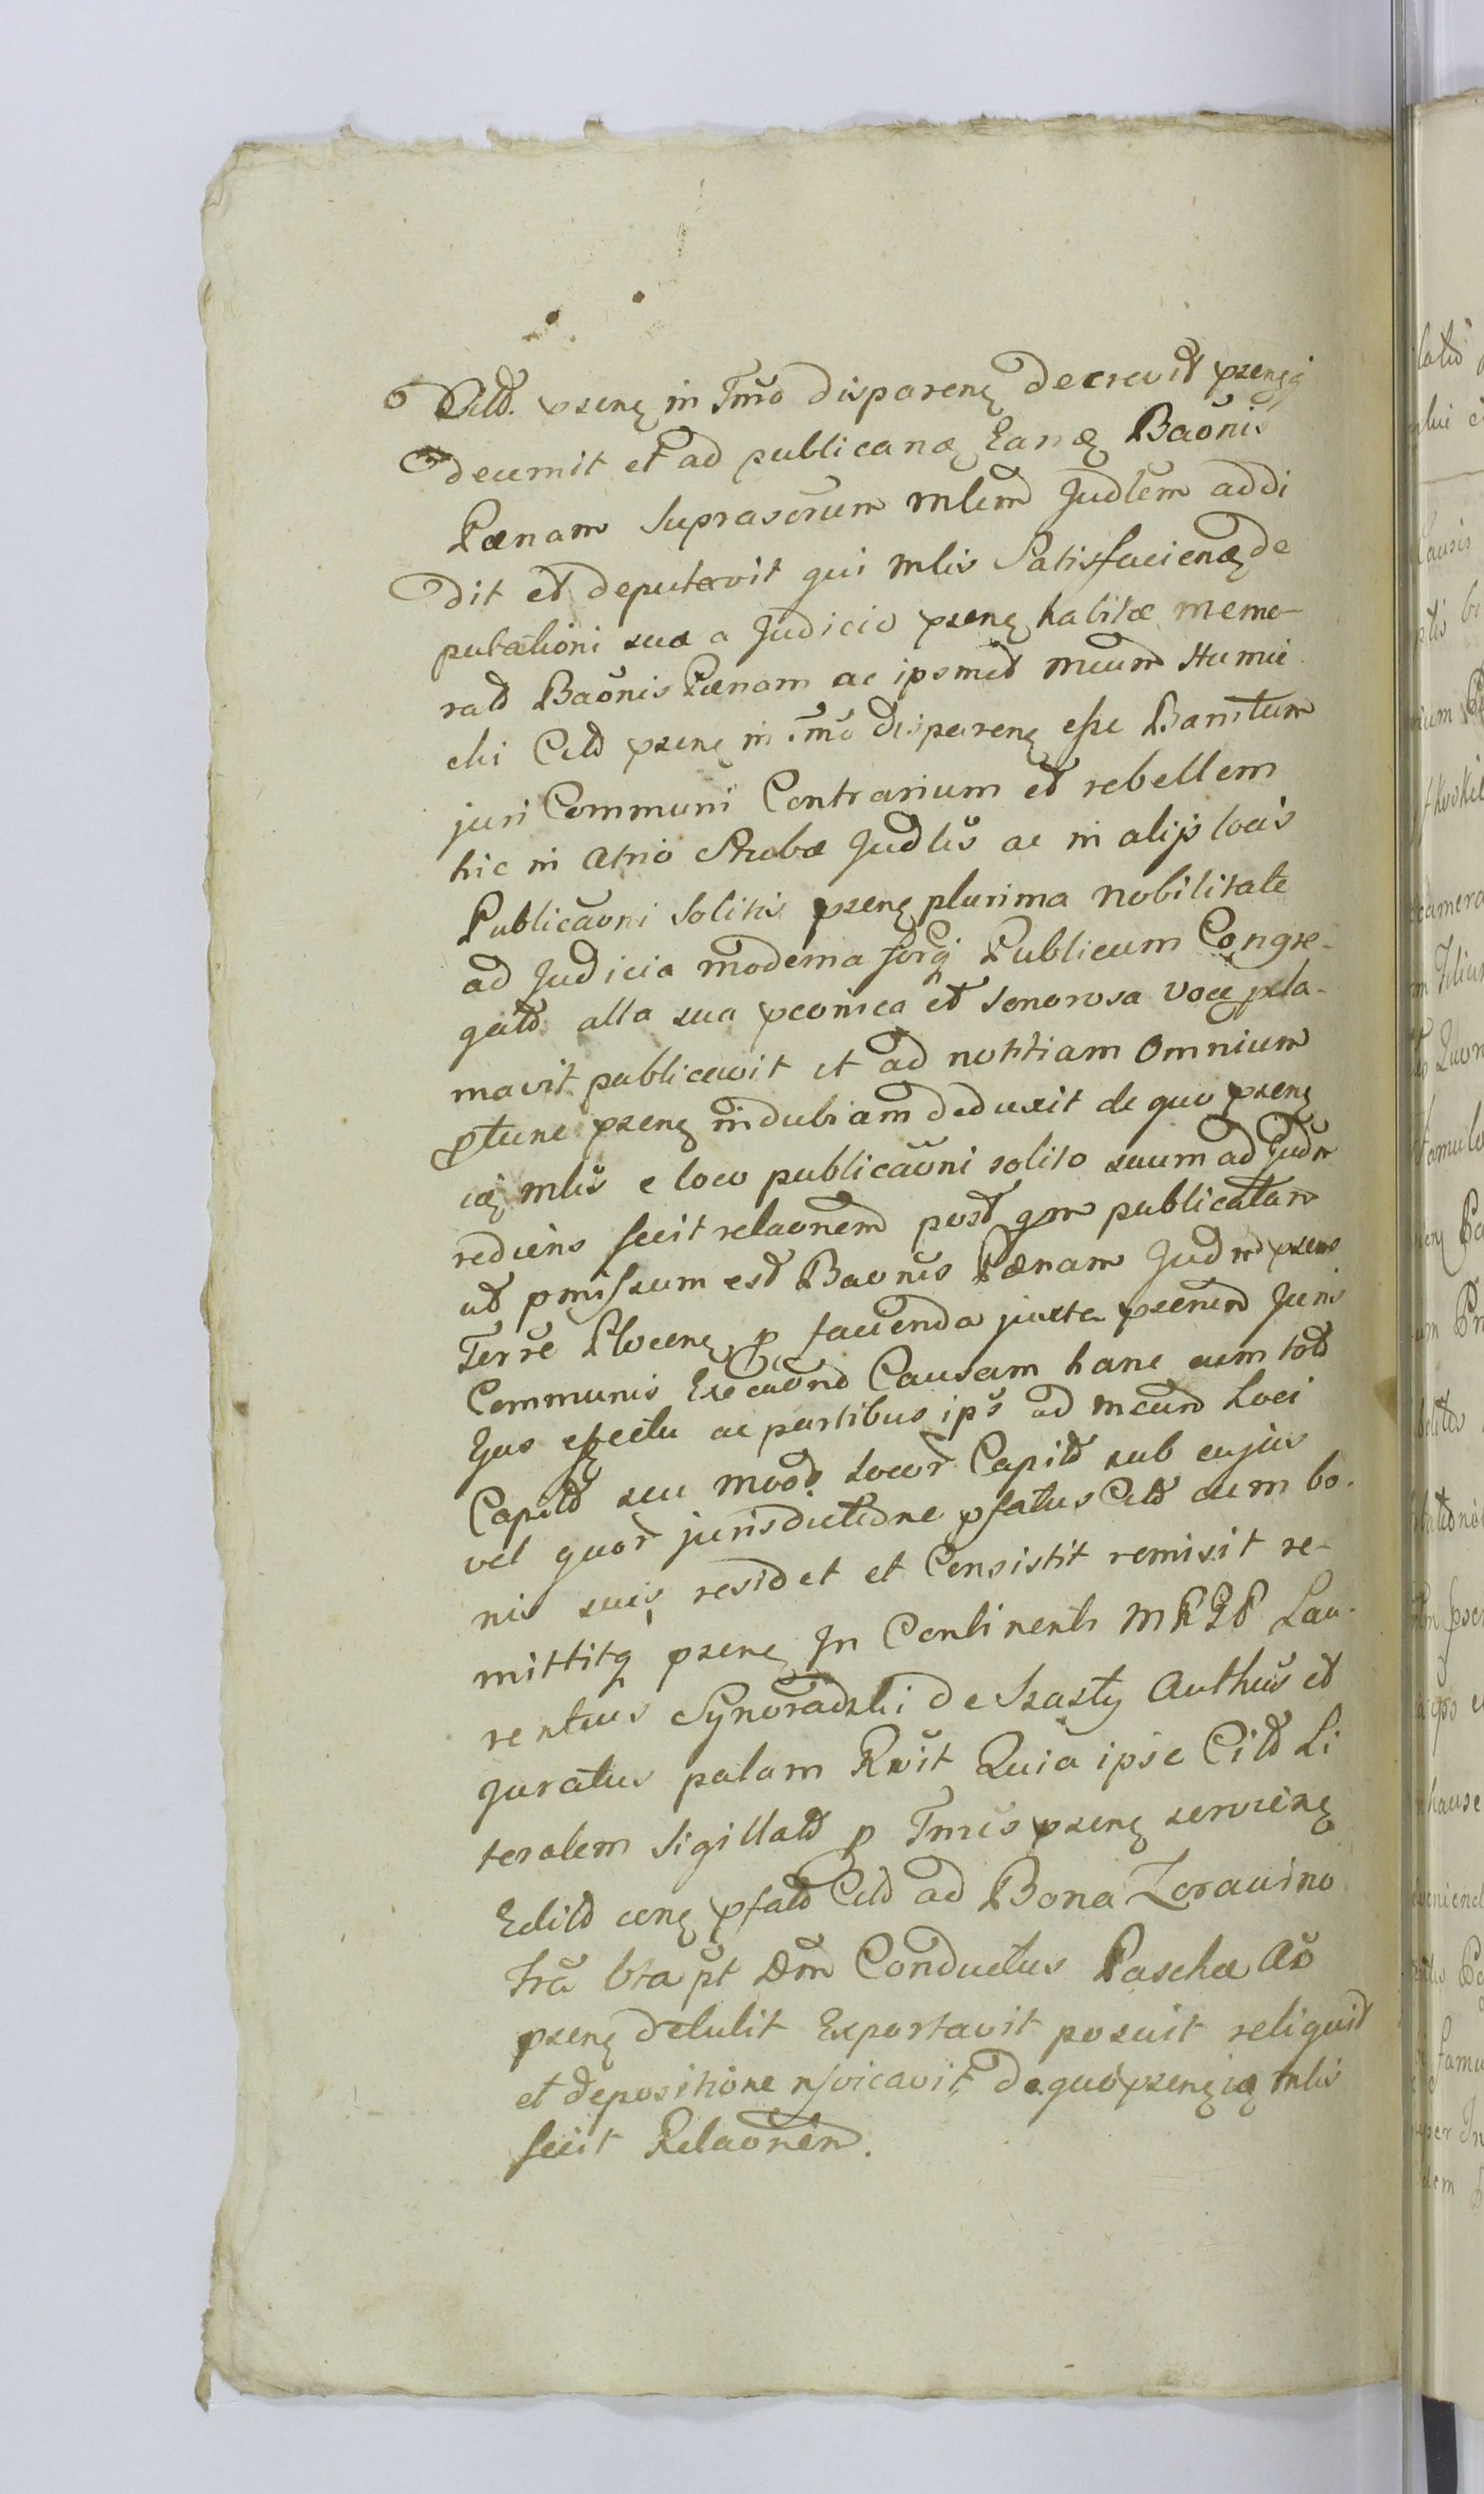 Citd. psenę in Tmo disparenę decrevit psenęq
decernit et ad publicanæ Eanę Baonis
Pænam suprascrum mlem Judlem addi
dit et deputavit qui mlis Satisfacienæ de
putationi suæ a Judicio psenę habitæ memo-
ratd Baonis Pænam ac ipsmet mcum Humie
cki Citd psenę in Tmo disparenę esse Banitum
juri Communi Contrarium et rebellem
hic in atrio Stubæ Judlis ac in alijs locis
Publicaoni Solitis psenę plurima nobilitate
ad Judicia moderna forq Publicum Congre-
gatd alta sua pconica et sonorosa voce pcla-
mavit publicavit et ad notitiam Omnium
ptunc psenę indubiam deduxit de quo psenę
iæ mlis e loco publicaoni solito suum ad Judm
rediens fecit relaonem post qm publicatam
ut pmissum est Baonis Pænam Judm psens
Terre Plocenę p facienda juxta pscrium Juris
Communis Execuone Causam hanc cum totd
Ejus effectu ac partibus ips ad mcum Loci
Capitd seu mood. Locor Capitd sub cujus
vel quor jurisdictione pfatus Citd cum bo-
nis suis residet et Consistit remisit re-
mittitq psenę In Continenti MRGP Lau-
rentius Synoradzki de Szasty Authus et
Juratus palam Rvit Quia ipse Citd Li
teralem Sigillatd p Tmis psenę servienę
Editd cenę pfatd Citd ad Bona Zorawino
fra 6ta pt Dm Conductus Paschæ Ao
psenę detulit Exportavit posuit reliquit
et depositione nfvicavit, de quo psenę iæ mlis
fecit Relaonem.